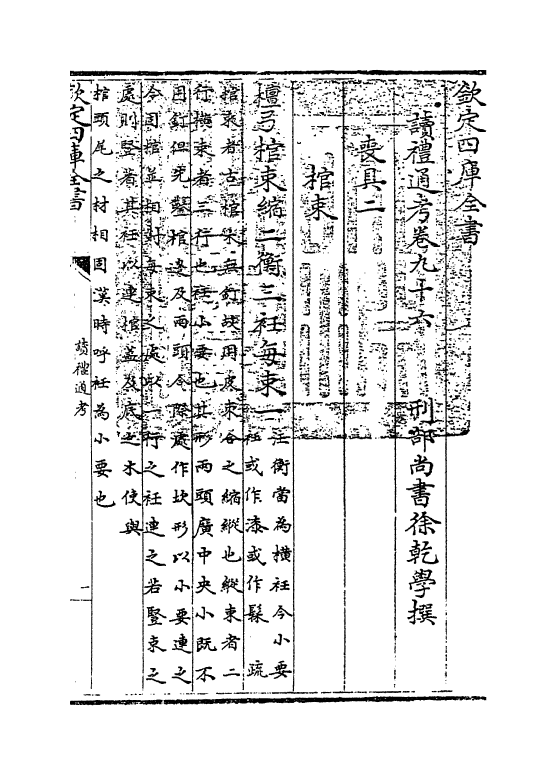 欽定四庫全書
讀禮通考卷九十六　刑部尚書徐乾學撰
喪具二
棺束
檀弓棺束縮二衡三衽每束一
注衡當為橫衽今小要
衽或作漆或作髹　疏
棺束者古棺木無釘故用皮束合之縮縱也縱束者二
行橫束者三行也衽小要也其形兩頭廣中央小既不
用釘但先鑿棺邊及兩頭合際處作坎形以小要連之
令固棺並相對每束之處以一行之衽連之若豎束之
處則豎著其衽以連棺蓋及底之木使與
棺頭尾之材相固漢時呼衽為小要也
欽定四庫全書
讀禮通考
一